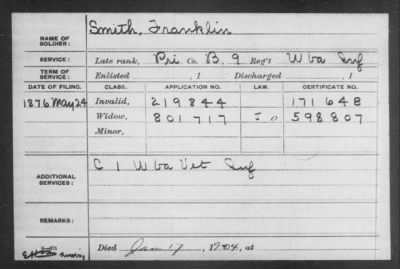 NAME OF SOLDIER: Smith, Franklin
SERVICE: Late rank, Pri Co. B, 9 Reg't W Va Inf
TERM OF SERVICE: Enlisted , 1 Discharged , 1
DATE OF FILING. CLASS. APPLICATION NO. LAW. CERTIFICATE NO.
1876 May 24 Invalid, 219844 171648
Widow, 801717 598807
Minor,
ADDITIONAL SERVICES: C 1 W Va Vet Inf
REMARKS:
Died Jan 17, 1904, at